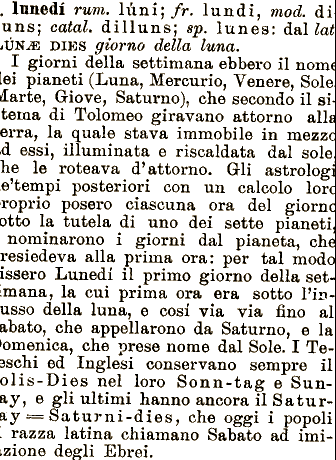 . lunedí rum. lúni; fr. lundi, mod. di
uns; catal. dilluns; sp. lunes: dal lat
LÚNÆ DIES giorno della luna.
I giorni della settimana ebbero il nome
dei pianeti (Luna, Mercurio, Venere, Sole
Marte, Giove, Saturno), che secondo il si
tema di Tolomeo giravano attorno alla
erra, la quale stava immobile in mezzo
d essi, illuminata e riscaldata dal sole
he le roteava d'attorno. Gli astrologi
e'tempi posteriori con un calcolo loro
roprio posero ciascuna ora del giorno
otto la tutela di uno dei sette pianeti,
nominarono i giorni dal pianeta, che
resiedeva alla prima ora: per tal modo
issero Lunedí il primo giorno della set-
imana, la cui prima ora era sotto l'in
usso della luna, e cosí via via fino al
abato, che appellarono da Saturno, e la
omenica, che prese nome dal Sole. I Te-
eschi ed Inglesi conservano sempre il
olis-Dies nel loro Sonn-tag e Sun-
ay, e gli ultimi hanno ancora il Satur-
ay = Saturni-dies, che oggi i popoli
i razza latina chiamano Sabato ad imi-
azione degli Ebrei.